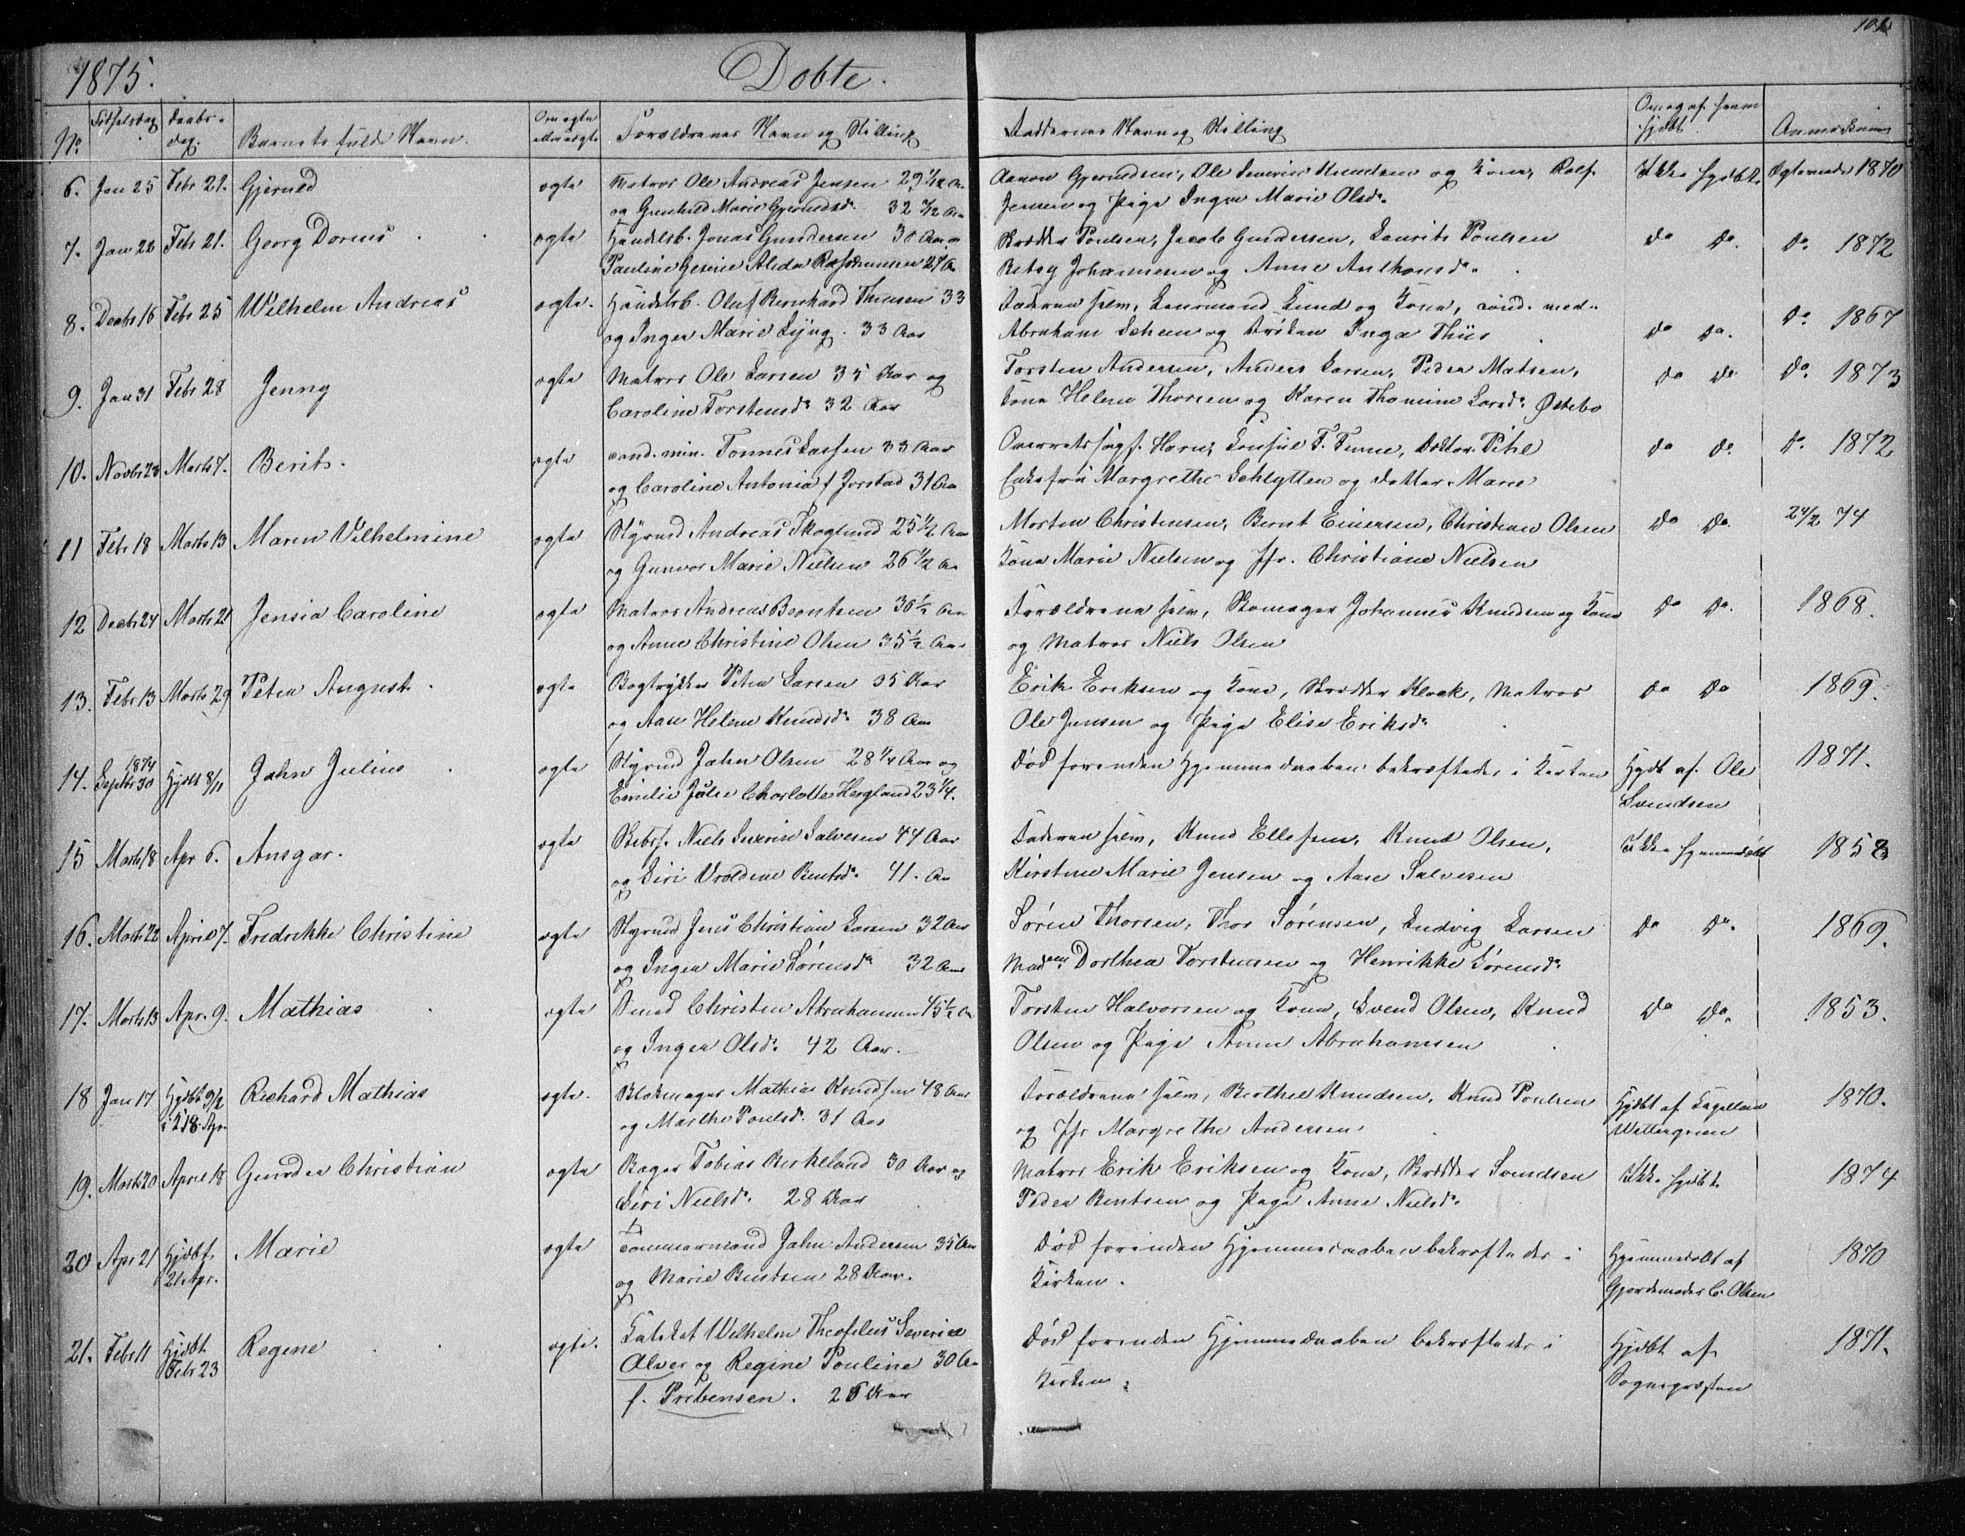 102
1875. Døbte.
No Fødselsdag Daabsdag. Barnets fulde Navn. Om ægte eller uægte Forældrenes Navn og Stilling Faddernes Navn og Stilling Om og af hvem hjdøbt. Anmærkning
6. Jan 25 Febr 21. Gjerulf ægte Matros Ole Andreas Jensen 29 Aar Aanon Gjerulfsen, Ole Severin Knudsen og Kone, Rolf Ikke hjdøbt. Ægteviede 1870
og Gunhild Marie Gjerulfsdr 32 1/2 Aar Jensen og Pige Inger Marie Olsdr.
7. Jan 22 Febr 21. Georg Dorius ægte Handelsb. Jonas Gundersen 30 Aar og Skrædder Poulsen, Jacob Gundersen, Laurits Poulsen do do. do 1872
Pauline Gesine Alida 27 Aar Betsy Johannesen og Anne Anthonsdr.
8. Decbr 16 Febr 25 Wilhelm Andreas ægte. Handelsb. Oluf Bernhard Thuesen 33 Faderen selv, Lund og Kone, cand. med.
og Inger Marie Lyng. 33 Aar Abraham Scheen og Frøken Inga Thiis do do. do 1867
9. Jan 31 Febr 28 Jenny ægte Matros Ole Larsen 35 Aar og Torsten Andersen, Anders Larsen, Peder Matsen, do do do. 1873
Caroline Torstensdr 32 Aar Kone Helene Thorsen og Karen Thomine Larsdr. Østebø
10. Novbr 23 Marts 7. Berit. ægte cand. min. Tønnes Lassen 33 Aar Overretssagf. Horn, Consul F. Finne, Doktor Pihl do do. do. 1872
og Caroline Antonia f Jorstad 31 Aar Enkefru Margrethe Schlytter og datter Marie
11 Febr 18 Marts 13 Maren Vilhelmine ægte Styrmd Andreas Skoglund 25 1/2 Aar Morten Christensen, Bernt Einersen, Christian Olsen do do. 24/2 74
og Gunvor Marie Nielsen 26 1/2 Aar Kone Marie Nielsen og Jfr. Christiane Nielsen
12 Decbr 24 Marts 21 Jensia Caroline ægte Matros Andreas Berntsen 36 1/2 Aar Forældrene selv, Skomager Johannes Knudsen og Kone do do. 1868.
og Anne Christine Olsen 35 1/2 Aar og Matros Niels Olsen
13. Febr 13 Marts 29 Peter August. ægte Bogtrykker Peter Larsen 35 Aar Erik Eriksen og Kone, Skrædder Klock, Matros do do 1869.
og Ane Helene Knudsdr. 38 Aar Ole Jensen og Pige Elise Eriksdr
14. 1874 Septbr 30 Hjdbt 8/11 John Julius ægte Styrmd John Olsen 28 1/4 Aar og Død forinden Hjemmedaaben bekræftedes i Kirken Hjdbt af Ole 1871.
Emilie Julie Charlotte Hegland 23 1/4. Svendsen
15 Marts 18 Apr 6. Ansgar. ægte Skibsf. Niels Severin Salvesen 44 Aar Faderen selv, Knud Ellefsen, Knud Olsen, Ikke hjemmedøbt 1858
og Siri Bentsdr. 41. Aar Kirstine Marie Jensen og Aase Salvesen
16. Marts 22 April 7. Fredrikke Christine ægte Styrmd Jens Christian Larsen 32 Aar Søren Thorsen, Thor Sørensen, Ludvig Larsen do do. 1869.
og Inger Marie Sørensdr 32 Aar Madam Dorthea Torstensen og Henrikke Sørensdr.
17. Marts 13 Apr. 9. Mathias ægte Smed Christen Abrahamsen 45 1/2 Aar Torsten Halvorsen og Kone, Svend Olsen, Knud do do. 1853.
og Inger Olsdr. 42 Aar. Olsen og Pige Anne Abrahamsen
18 Jan 17 Hjdbt 9/2 Richard Mathias ægte. Blokmager Mathias Knudsen 48 Aar Forældrene selv, Berthel Knudsen, Knud Poulsen Hjdbt af Kapellan 1870.
18. Apr. og Marthe Poulsdr. 31 Aar og Jfr Margrethe Andersen. Wettergreen
19. Marts 20 April 18 Gunder Christian ægte Bager Tobias Birkeland 30 Aar og Matros Erik Eriksen og Kone, Skrædder Svendsen Ikke hjdbt. 1874
Siri Nielsdr. 28 Aar Peder Bentsen og Pige Anne Nielsdr.
20 Apr 21 Hjdbt 21 Apr. Marie ægte Tømmermand John Andersen 35 Aar Død forinden Hjemmedaaben bekræftedes i Hjemmedøbt af 1870
og Marie Bentsen 28 Aar. Kirken. Gjordemoder C. Olsen
21. Febr 11 Hjdbt Febr 23 Regine ægte. Katekat Wilhelm Theofilus Severin Død forinden Hjemmedaaben bekræftedes i Hjdbt af 1871.
Alver og Regine Pouline 30 Aar Kirken. Sognepræsten
f. Pribensen. 26 Aar